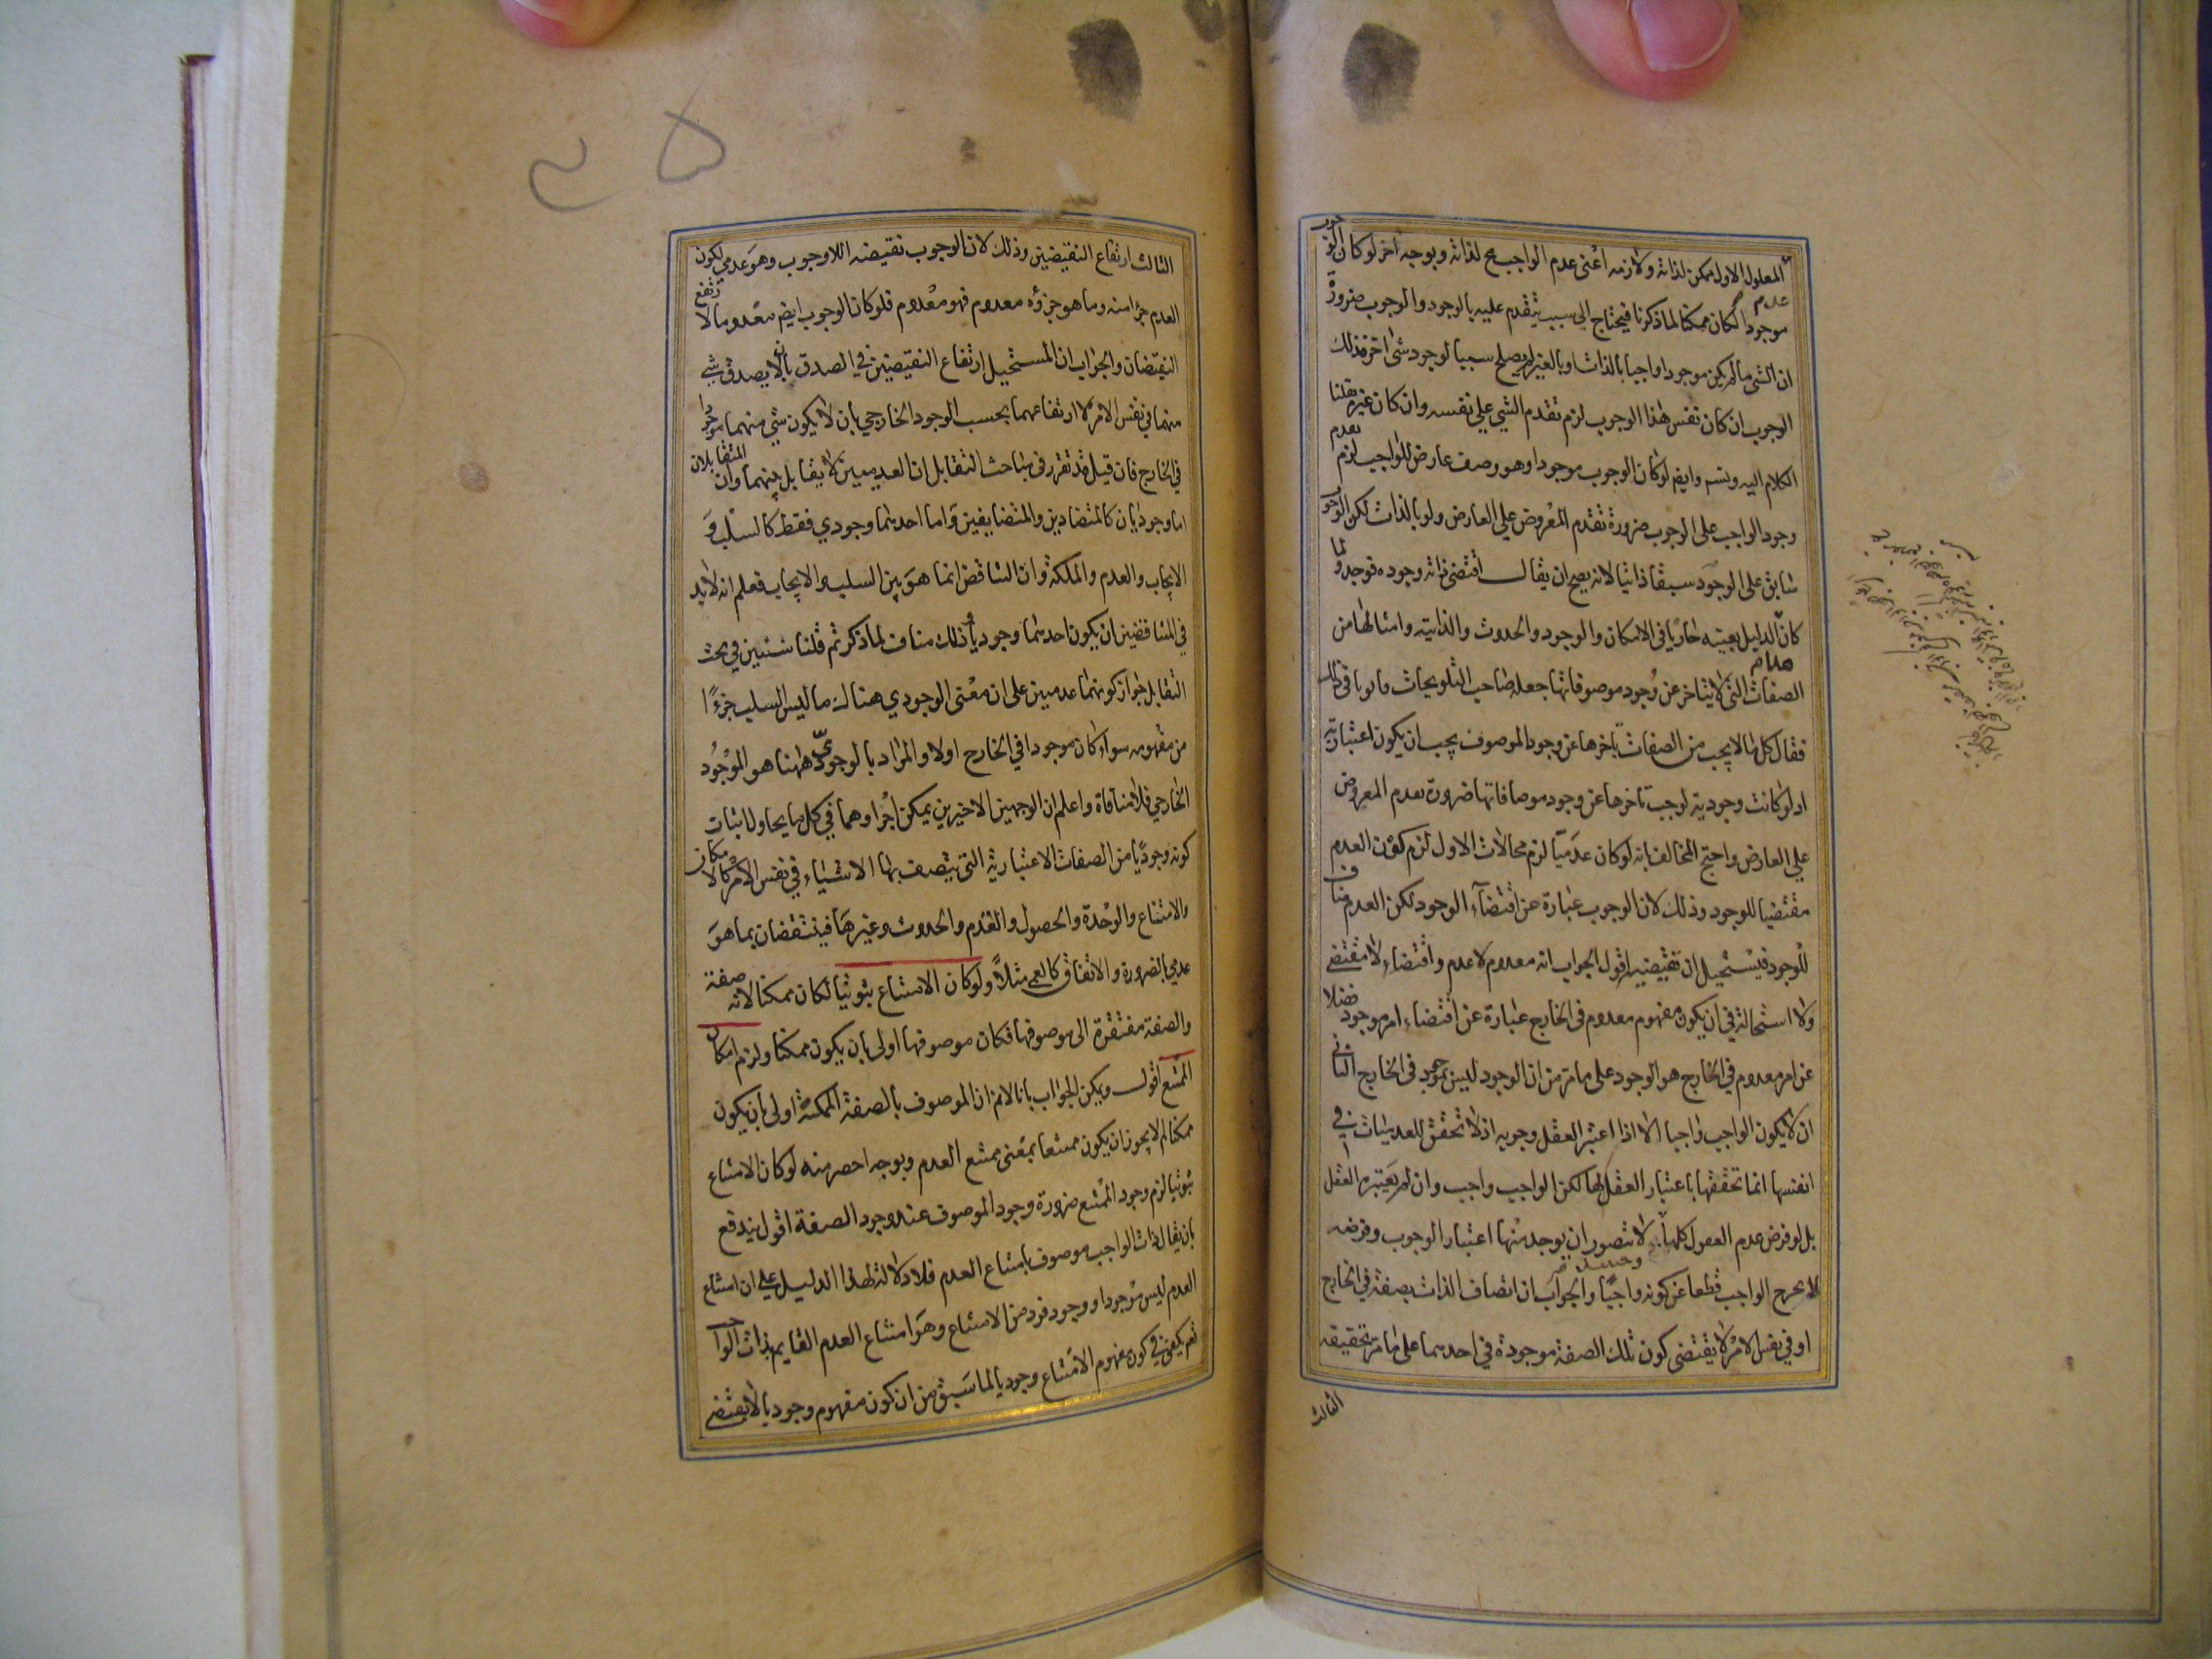 المعلول الاول ممكن لذاته ولازمه اعنى عدم الواجب مح لذاته وبوجه اخر لو كان الوجوب
موجودا لكان ممكنا لما ذكرنا فيحتاج الى سبب يتقدم عليه بالوجود والوجوب ضرورة
ان الشى ما لم يكن موجودا واجبا بالذات او بالغير لم يصلح سببا لوجود شى اخر فذلك
الوجوب ان كان نفس هذا الوجوب لزم تقدم الشي علي نفسه وان كان غيره نقلنا
الكلام اليه ويتسم وايضم لو كان الوجوب موجودا وهو وصف عارض للواجب لزم تقدم
وجود الواجب على الوجوب ضرورة تقدم المعروض علي العارض ولو بالذات لكن الوجوب
سابق على الوجود سبقا ذاتيا لانه يصح ان يقال اقتضى ذاته وجوده فوجد ولما
كان الدليل بعينه جاريا فى الامكان والوجود والحدوث والذاتية وامثالها من
الصفات التى لا يتاخر عن وجود موصوفاتها جعله صاحب التلويحات قانونا فى ذلك
فقال كل ما لا يجب من الصفات تاخرها عن وجود الموصوف يجب ان يكون اعتبارية
اذ لو كانت وجودية لوجب تاخرها عن وجود موصافاتها ضرورة تقدم المعروض
علي العارض واحتج المخالف بانه لو كان عدميا لزم محالات الاول لزم كون العدم
مقتضيا للوجود وذلك لان الوجوب عبارة عن اقتضاء الوجود لكن العدم مناف
للوجود فيستحيل ان يقتضيه اقول الجواب انه معدوم لا عدم واقتضاء لا مقتضى
ولا استحالة في ان يكون مفهوم معدوم فى الخارج عبارة عن اقتضاء امر موجود فضلا
عن امر معدوم في الخارج هو الوجود على ما مر من ان الوجود ليس بموجود فى الخارج الثانى
ان لا يكون الواجب واجبا الا اذا اعتبر العقل وجوبه اذ لا تحقق للعدميات في
انفسها انما تحققها باعتبار العقل لها لكن الواجب واجب وان لم يعتبره العقل
بل لو فرض عدم العقول كلها لا تتصور ان يوجد منها اعتبار الوجوب وفرضه
لا يخرج الواجب قطعا عن كونه واجبا والجواب ان اتصاف الذات بصفة في الخارج
او في نفس الامر لا يقتضى كون تلك الصفة موجودة في احدهما على ما مر تحقيقه
الثالث
الثالث ارتفاع النقيضين وذلك لان الوجوب نقيضه اللا وجوب وهو عدمي لكون
العدم جزأ منه وما هو جزؤه معدوم فهو معدوم فلو كان الوجوب ايضم معدوما لا رتفع
النقيضان والجواب ان المستحيل ارتفاع النقيضين في الصدق بان لا يصدق شي
منهما في نفس الامر لا ارتفاعهما بحسب الوجود الخارجي بان لا يكون شي منهما موجودا
في الخارج فان قيل قد تقرر فى مباحث التقابل ان العدميين لا يقابل بينهما وان المتقابلان
اما وجوديان كالمتضادين والمتضايفين واما احدهما وجودي فقط كالسلب و
الايجاب والعدم والملكة وان التناقض انما هو بين السلب والايجاب فعلم انه لا بد
في المتناقضين ان يكون احدهما وجوديا وذلك مناف لما ذكر ثم قلنا سنبين في بحث
التقابل جواز كونهما عدميين على ان معنى الوجودي هناك ما ليس السلب جزءا
من مفهومه سواء كان موجودا في الخارج اولا والمراد بالوجودي ههنا هو الموجود
الخارجي فلا منافاة واعلم ان الوجهين الاخيرين يمكن اجراوهما في كل ما يحاول اثبات
كونه وجوديا من الصفات الاعتبارية التى يتصف بها الاشياء في نفس الامر كالامكان
والامتناع والوحدة والحصول والقدم والحدوث وغيرها فينتقضان بما هو
عدمي بالضرورة والاتفاق كالعمي مثلا ولو كان الامتناع ثبوتيا لكان ممكنا لانه صفة
والصفة مفتقرة الى موصوفها فكان موصوفها اولى بان يكون ممكنا ولزم امكان
الممتنع اقول ويمكن الجواب بانا لا نم ان الموصوف بالصفة الممكنة اولى بان يكون
ممكنا لم لا يجوز ان يكون ممتنعا بمعنى ممتنع العدم وبوجه احصر منه لو كان الامتناع
ثبوتيا لزم وجود الممتنع ضرورة وجود الموصوف عند وجود الصفة اقول يندفع
بان يقال ذات الواجب موصوف بامتناع العدم فلا دلالة لهذا الدليل علي ان امتناع
العدم ليس موجودا ووجود فرد من الامتناع وهو امتناع العدم القايم بذات الواجب
نعم يكفى في كون مفهوم الامتناع وجوديا لما سبق من ان كون مفهوم وجوديا لا يقتضى